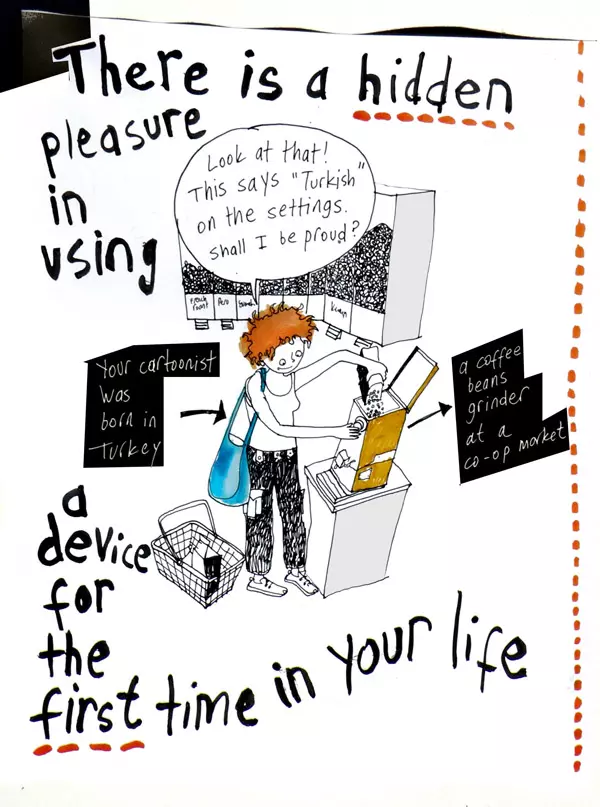 There is a hidden
pleasure
in
using
Look at that!
This says "Turkish"
on the settings.
shall I be proud?
French
roast
Peru
Kenya
Your cartoonist
was
born in
Turkey
a coffee
beans
grinder
at a
co-op market
a
device
for
the
first time in your life